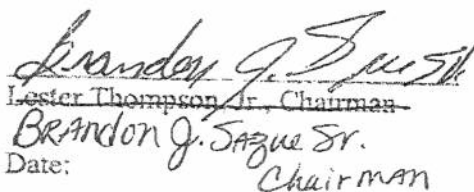 Brandon J. Sazue Sr.
Lester Thompson, Jr., Chairman
BRAndon J. SAzue Sr.
Date: ChairMAN